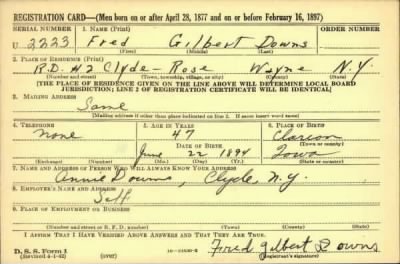 REGISTRATION CARD—(Men born on or after April 28, 1877 and on or before February 16, 1897)
SERIAL NUMBER 1. NAME (Print) ORDER NUMBER
U 2223 Fred Gilbert Downs
(First) (Middle) (Last)
2. PLACE OF RESIDENCE (Print)
R.D. #2 Clyde - Rose Wayne N.Y.
(Number and street) (Town, township, village, or city) (County) (State)
[THE PLACE OF RESIDENCE GIVEN ON THE LINE ABOVE WILL DETERMINE LOCAL BOARD
JURISDICTION; LINE 2 OF REGISTRATION CERTIFICATE WILL BE IDENTICAL]
3. MAILING ADDRESS
Same
(Mailing address if other than place indicated on line 2. If same insert word same)
4. TELEPHONE 5. AGE IN YEARS 6. PLACE OF BIRTH
none 47 Clarion
DATE OF BIRTH (Town or county)
June 22 1894 Iowa
(Exchange) (Number) (Mo.) (Day) (Yr.) (State or country)
7. NAME AND ADDRESS OF PERSON WHO WILL ALWAYS KNOW YOUR ADDRESS
Annie Downs, Clyde, N.Y.
8. EMPLOYER'S NAME AND ADDRESS
Self
9. PLACE OF EMPLOYMENT OR BUSINESS
(Number and street or R. F. D. number) (Town) (County) (State)
I AFFIRM THAT I HAVE VERIFIED ABOVE ANSWERS AND THAT THEY ARE TRUE.
D. S. S. Form 1 Fred Gilbert Downs
(Revised 4-1-42) (over) (Registrant's signature)